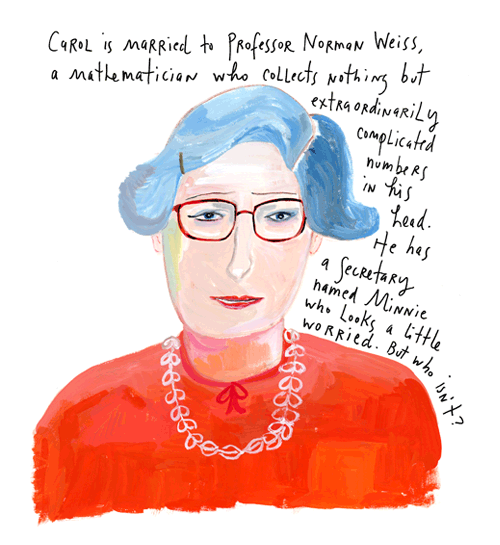 Carol is married to Professor Norman Weiss,
a mathematician who collects nothing but
extraordinarily
complicated
numbers
in his
head.
He has
a secretary
named Minnie
who looks a little
worried. But who isn't?